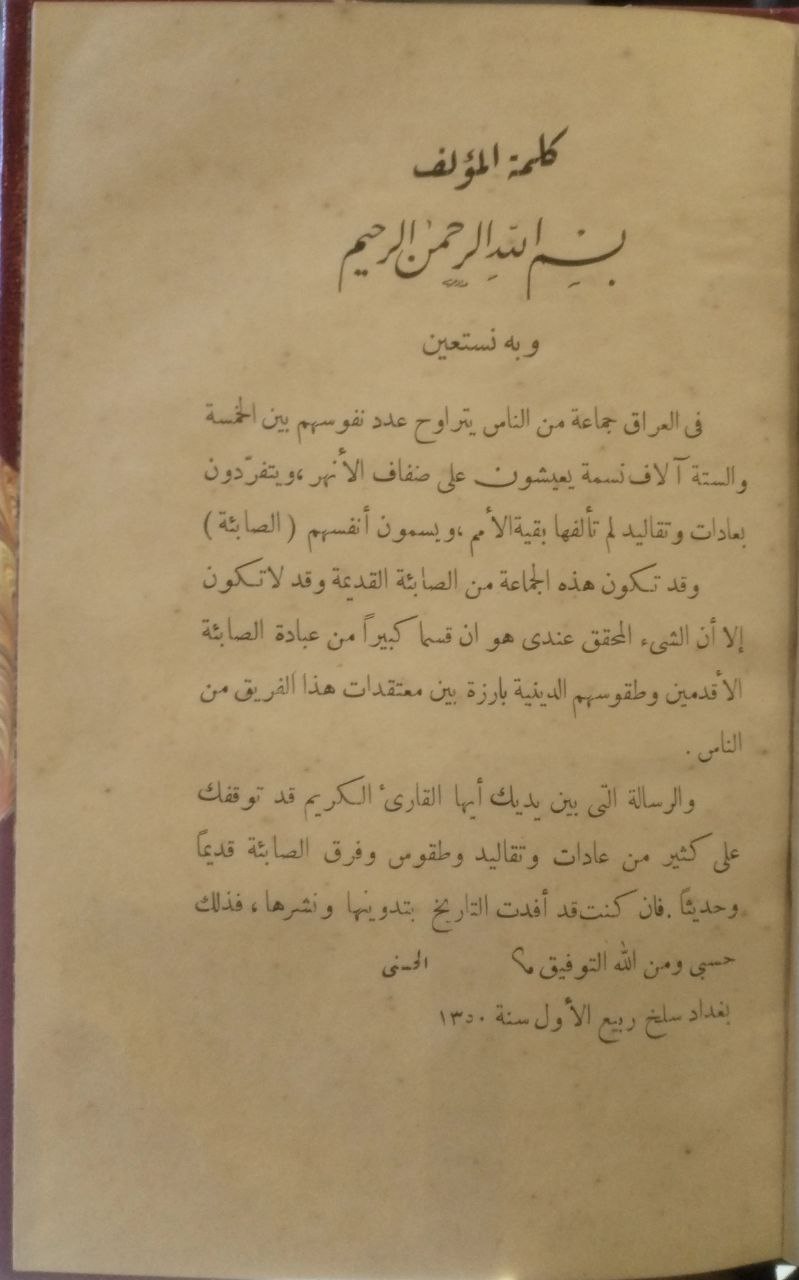 كلمة المؤلف
بسم الله الرحمن الرحيم
وبه نستعين
فى العراق جماعة من الناس يتراوح عدد نفوسهم بين الخمسة
والستة آلاف نسمة يعيشون على ضفاف الأنهر ، ويتفرّدون
بعادات وتقاليد لم تألفها بقية الأمم ، ويسمون أنفسهم ( الصابئة )
وقد تكون هذه الجماعة من الصابئة القديمة وقد لا تكون
إلا أن الشىء المحقق عندى هو ان قسما كبيراً من عبادة الصابئة
الأقدمين وطقوسهم الدينية بارزة بين معتقدات هذا الفريق من
الناس .
والرسالة التى بين يديك أيها القارىء الكريم قد توقفك
على كثير من عادات وتقاليد وطقوس وفرق الصابئة قديماً
وحديثاً . فان كنت قد أفدت التاريخ بتدوينها ونشرها ، فذلك
حسبى ومن الله التوفيق الحسنى
بغداد سلخ ربيع الأول سنة ١٣٥٠